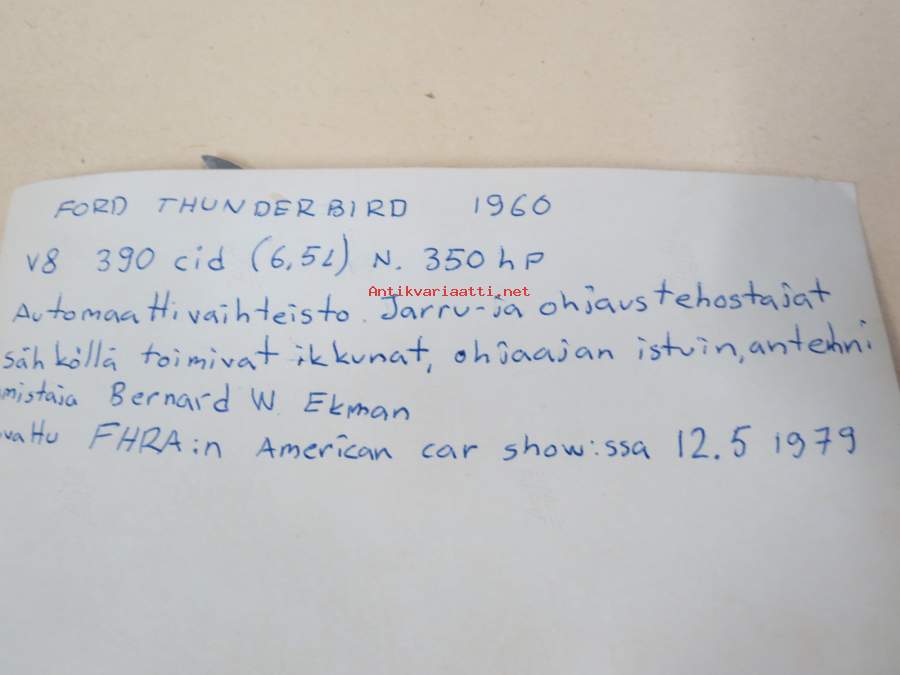 FORD THUNDERBIRD 1960
V8 390 cid (6,5L) N. 350 hp
Antikvariaatti.net
Automaattivaihteisto. Jarru-ja ohjaustehostajat
sähköllä toimivat ikkunat, ohjaajan istuin, antenni
mistaja Bernard W. Ekman
vattu FHRA:n American car show:ssa 12.5 1979